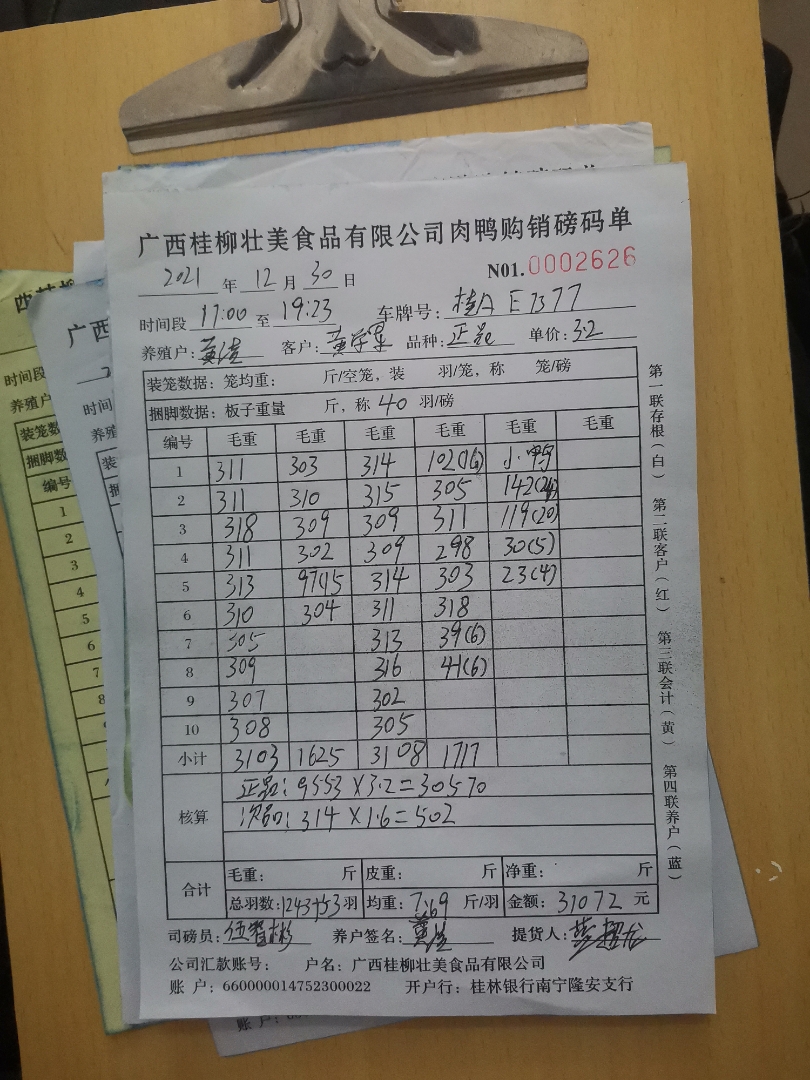 广西桂柳壮美食品有限公司肉鸭购销磅码单
2021 年 12 月 30 日 N01.0002626
时间段 17:00 至 19:23 车牌号: 桂A E7377
养殖户: 黄 客户: 黄学军 品种: 正品 单价: 3.2
装笼数据: 笼均重: 斤/空笼, 装 羽/笼, 称 笼/磅
捆脚数据: 板子重量 斤, 称 40 羽/磅
编号 毛重 毛重 毛重 毛重 毛重 毛重
1 311 303 314 102(16) 小鸭
2 311 310 315 305 142(24)
3 318 309 309 311 119(20)
4 311 302 309 298 30(5)
5 313 97(15 314 303 23(4)
6 310 304 311 318
7 305 313 39(6)
8 309 316 41(6)
9 307 302
10 308 305
小计 3103 1625 3108 1717
核算
正品: 9553 × 3.2 = 30570
次品: 314 × 1.6 = 502
合计
毛重: 斤 皮重: 斤 净重: 斤
总羽数: 1243+53 羽 均重: 7.69 斤/羽 金额: 31072 元
司磅员: 伍智彬 养户签名: 黄 提货人:
公司汇款账号: 户名: 广西桂柳壮美食品有限公司
账 户: 660000014752300022 开户行: 桂林银行南宁隆安支行
第一联存根(白) 第二联客户(红) 第三联会计(黄) 第四联养户(蓝)
广西
时间
养殖
装
捆
编号
时间段
养殖户
装笼数
捆脚数
编号
1
2
3
4
5
6
7
8